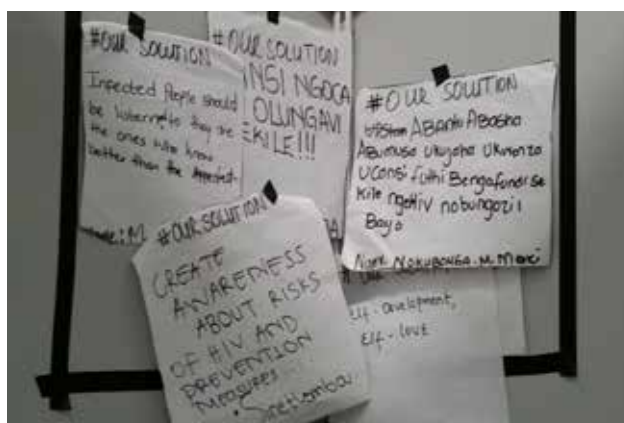 #OUR SOLUTION
Infected People should
be listened to they are
the ones who know
better than the
#OUR SOLUTION
NSI NGOCA
OLUNGAVI
EKILE!!!
#OUR SOLUTION
ABantu ABasha
Abamusa ukujaha ukwenza
Ucansi futhi Bengafundise
kile ngoHiv nobungozi
Bayo
Nokubonga.M.
#OUR SOLUTION
CREATE
AWARENESS
ABOUT RISKS
OF HIV AND
PREVENTION
measures
Sinetlomba
Self-Development,
Self-love